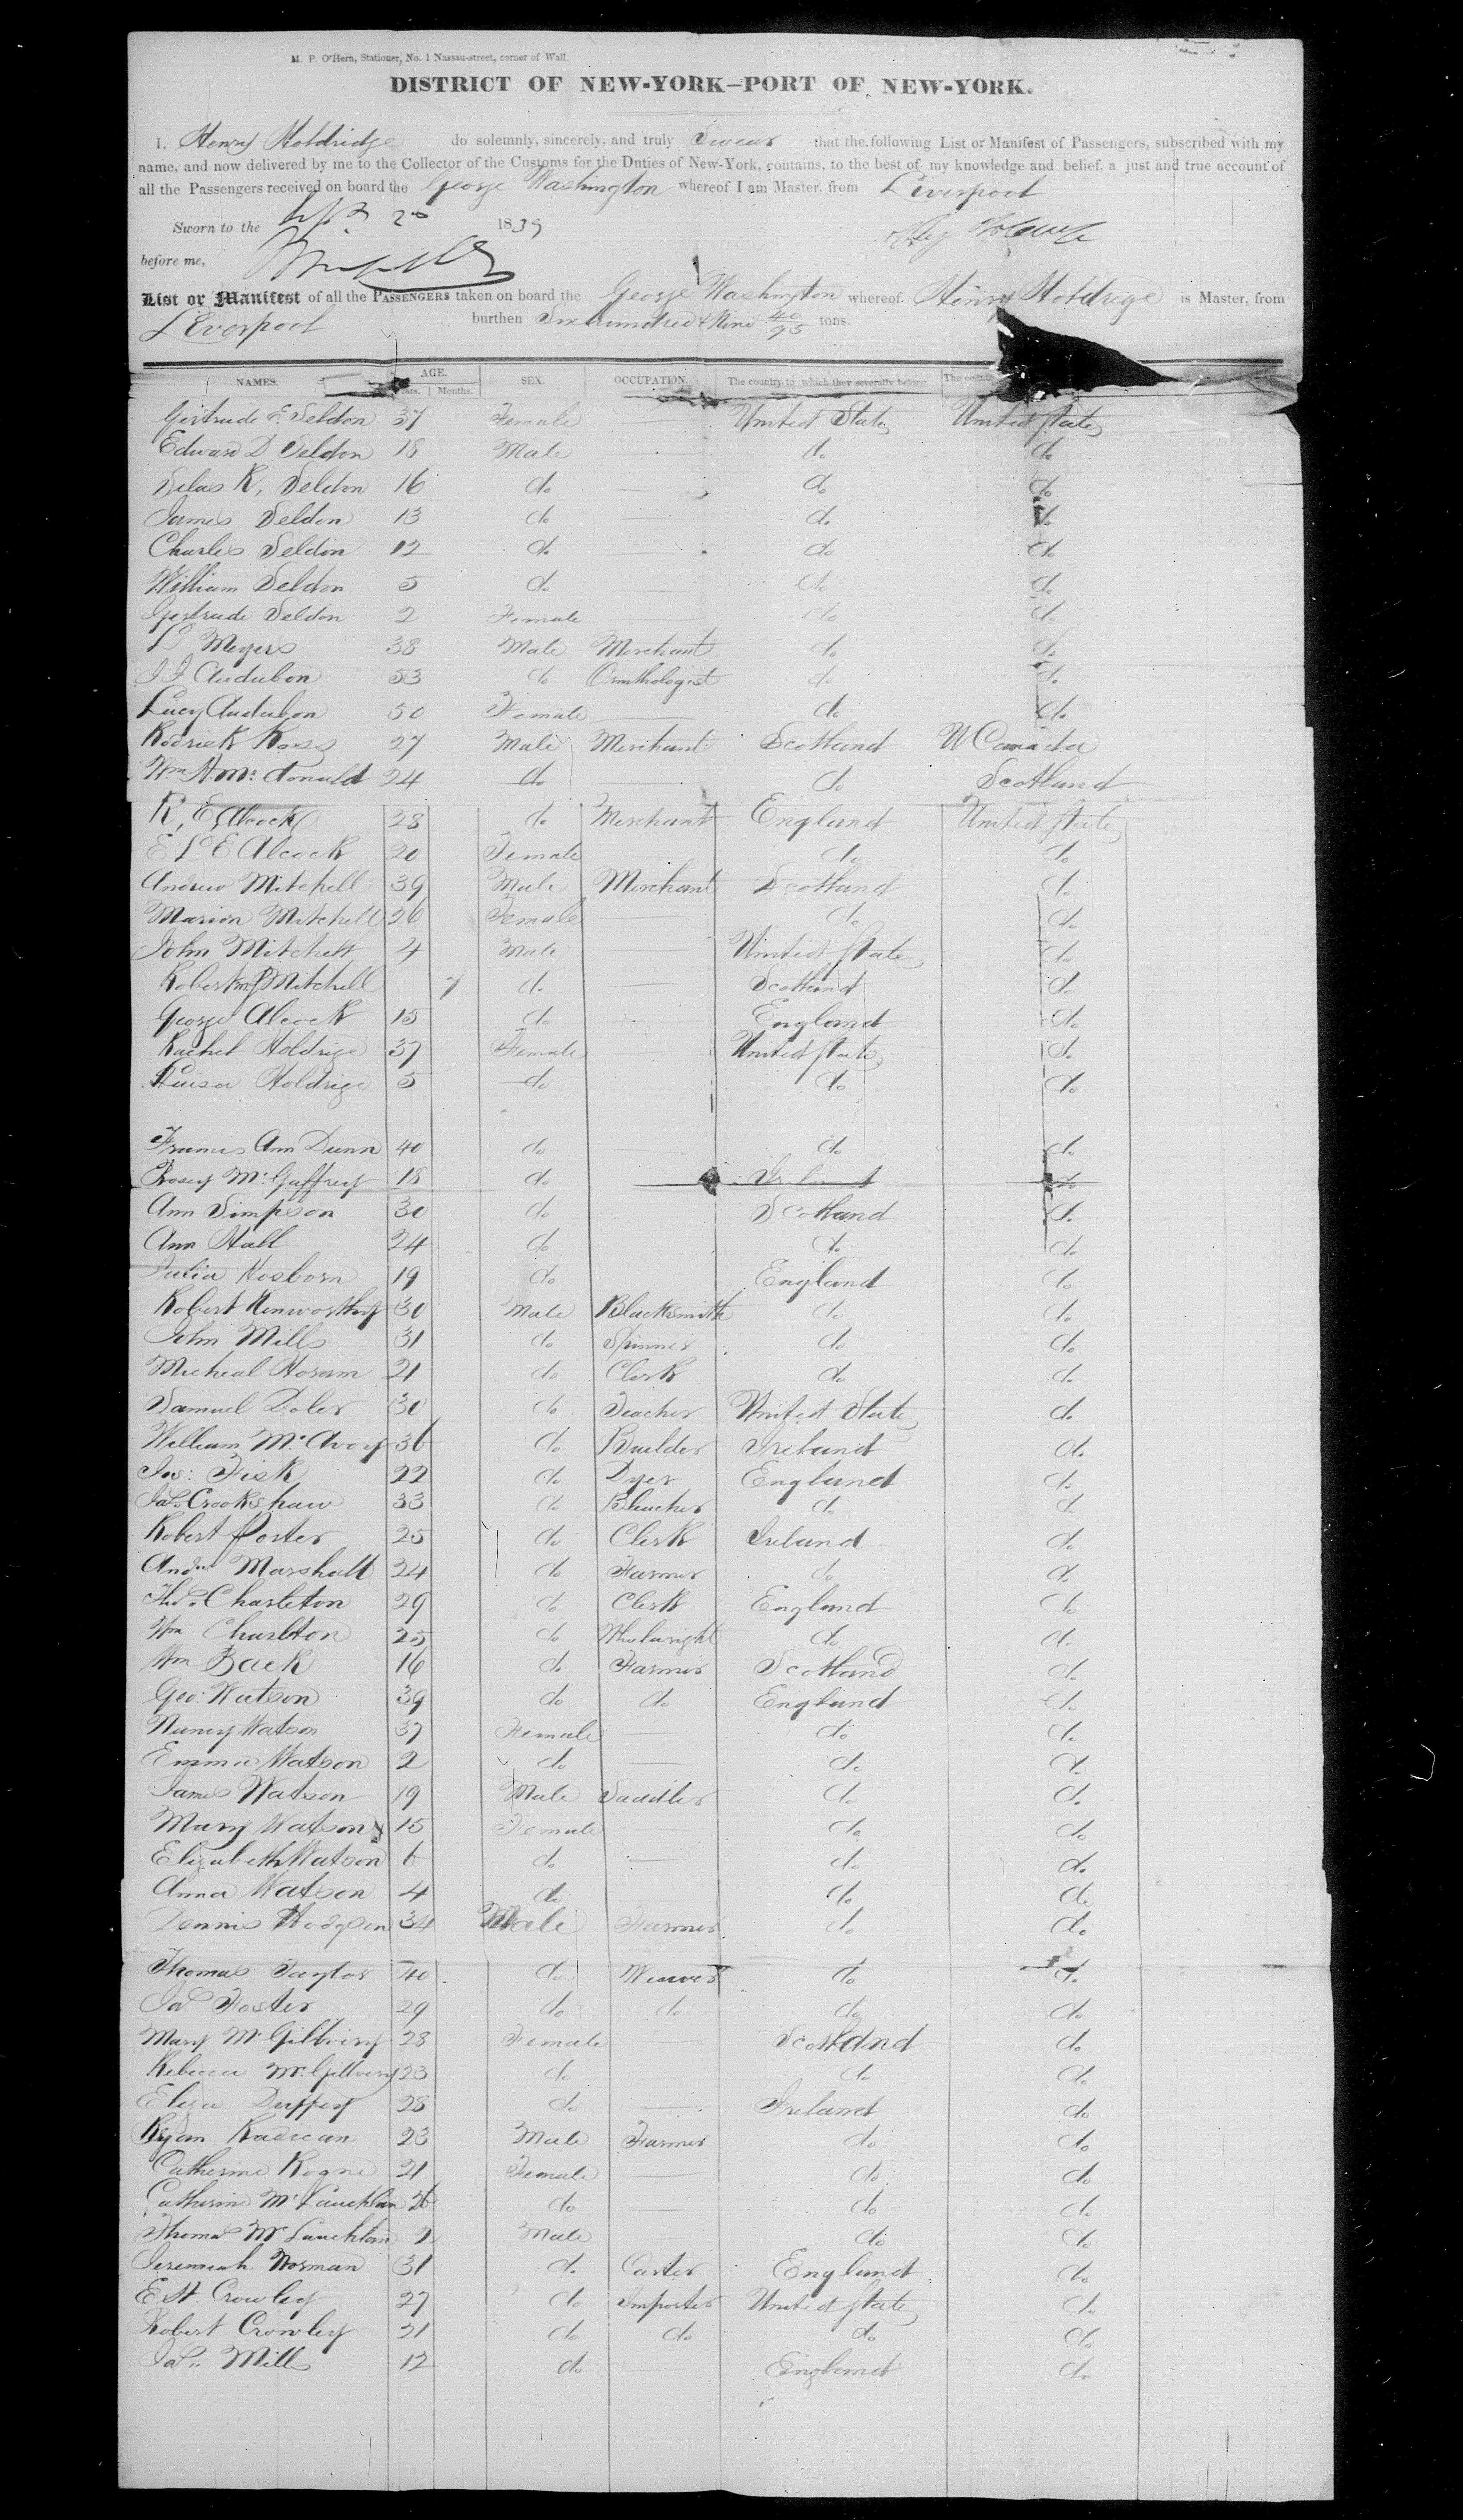 M. P. O'Hern, Stationer, No. 1 Nassau-street, corner of Wall.
DISTRICT OF NEW-YORK—PORT OF NEW-YORK.
I, Henry Holdridge do solemnly, sincerely, and truly Swear that the following List or Manifest of Passengers, subscribed with my
name, and now delivered by me to the Collector of the Customs for the Duties of New-York, contains, to the best of my knowledge and belief, a just and true account of
all the Passengers received on board the George Washington whereof I am Master, from Liverpool
Sworn to the Sept 2d 1839
before me,
List or Manifest of all the PASSENGERS taken on board the George Washington whereof Henry Holdrige is Master, from
Liverpool burthen Six hundred & Nine 40/95 tons.
NAMES. AGE. Years. Months. SEX. OCCUPATION. The country to which they severally belong. The count
Gertrude E. Seldon 37 Female — United States United States
Edward D Seldon 18 Male — do do
Silas R, Seldon 16 do — do do
James Seldon 13 do — do do
Charles Seldon 12 do — do do
William Seldon 5 do — do do
Gertrude Seldon 2 Female — do do
L Meyers 38 Male Merchant do do
J J Audubon 53 do Ornithologist do do
Lucy Audubon 50 Female — do do
Rodrick Ross 27 Male Merchant Scotland U Canada
Wm H. Mc donald 24 do — do Scotland
R, E, Alcock 28 do Merchant England United States
E L E Alcock 20 Female do do
Andrew Mitchell 39 Male Merchant Scotland do
Marion Mitchell 26 Female — do do
John Mitchell 4 Male — United States do
Robert Mitchell 7 do — Scotland do
George Alcock 15 do — England do
Rachel Holdrige 37 Female — United States do
Louisa Holdrige 5 do do do
Frances Ann Dunn 40 do do do
Rosey Mc Gaffrey 18 do Ireland do
Ann Simpson 30 do Scotland do
Ann Hall 24 do do do
Julia Hosborn 19 do England do
Robert Kenworthy 30 Male Blacksmith do do
John Mills 31 do Spinner do do
Micheal Horam 21 do Clerk do do
Samuel Doler 30 do Teacher United States do
William Mc Avoy 36 do Builder Ireland do
Jos: Fisk 22 do Dyer England do
Jas. Crookshaw 33 do Bleacher do do
Robert Porter 25 do Clerk Ireland do
Andw Marshall 24 do Farmer do do
Thos. Charleton 29 do Clerk England do
Wm Charlton 25 do Wheelwright do do
Wm Back 16 do Farmer Scotland do
Geo: Watson 39 do do England do
Nancy Watson 37 Female — do do
Emma Watson 2 do — do do
James Watson 19 Male Saddler do do
Mary Watson 15 Female do do
Elizabeth Watson 6 do — do do
Anna Watson 4 do do do
Dennis Hodgson 34 Male Farmer do do
Thomas Taylor 40 do Weaver do do
Jas Foster 29 do do do do
Mary Mc Gillviry 28 Female — Scotland do
Rebecca Mc Gillvery 23 do do do
Eliza Duffey 28 do — Ireland do
Ryan Radican 23 Male Farmer do do
Catherine Rogne 21 Female — do do
Catherine Mc Lauchlan 26 do — do do
Thomas Mc Lauchlan 2 Male do do
Jeremiah Norman 31 do Carter England do
E St. Crowley 27 do Importer United States do
Robert Crowley 21 do do do do
Jas. Mills 12 do England do